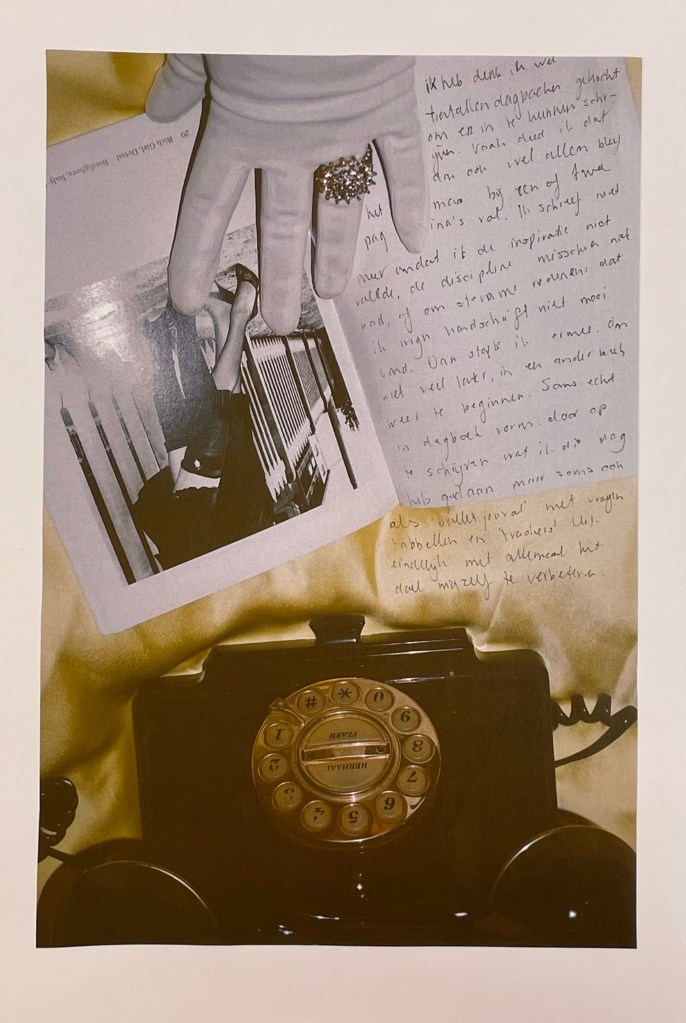 20 Rich Girl, Detail Bordighera, Italy
ik heb denk ik wel
tientallen dagboeken gekocht
om er in te kunnen schrij-
ven. Vaak deed ik dat
dan ook wel alleen bleef
het maar bij een of twee
pagina's vol. Ik schreef niet
meer omdat ik de inspiratie niet
voelde, de discipline misschien niet
vond, of om stomme redenen: dat
ik mijn handschrift niet mooi
vond. Dan stopte ik ermee. Om
niet veel later, in een ander boek
weer te beginnen. Soms echt
in dagboek vorm. door op
te schrijven wat ik die dag
heb gedaan maar soms ook
als bulletjournal met vragen
tabbellen en 'trackers' Uit-
eindelijk met allemaal het
doel mijzelf te verbeteren.
1 2 3 4 5 6 7 8 9 0 * #
HERHAAL
FLASH